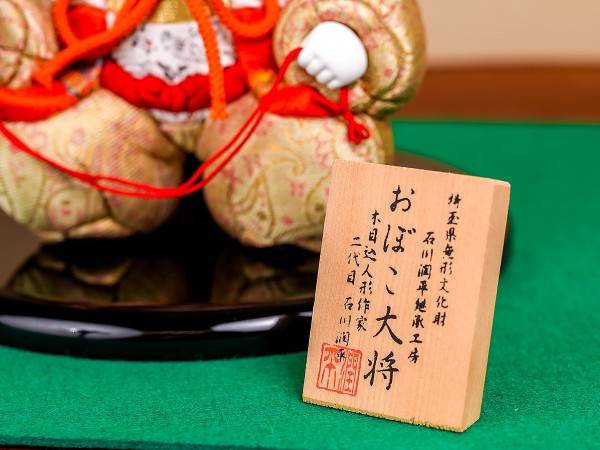 埼玉県無形文化財
石川潤平継承工房
おぼこ大将
木目込人形作家
二代目 石川潤平